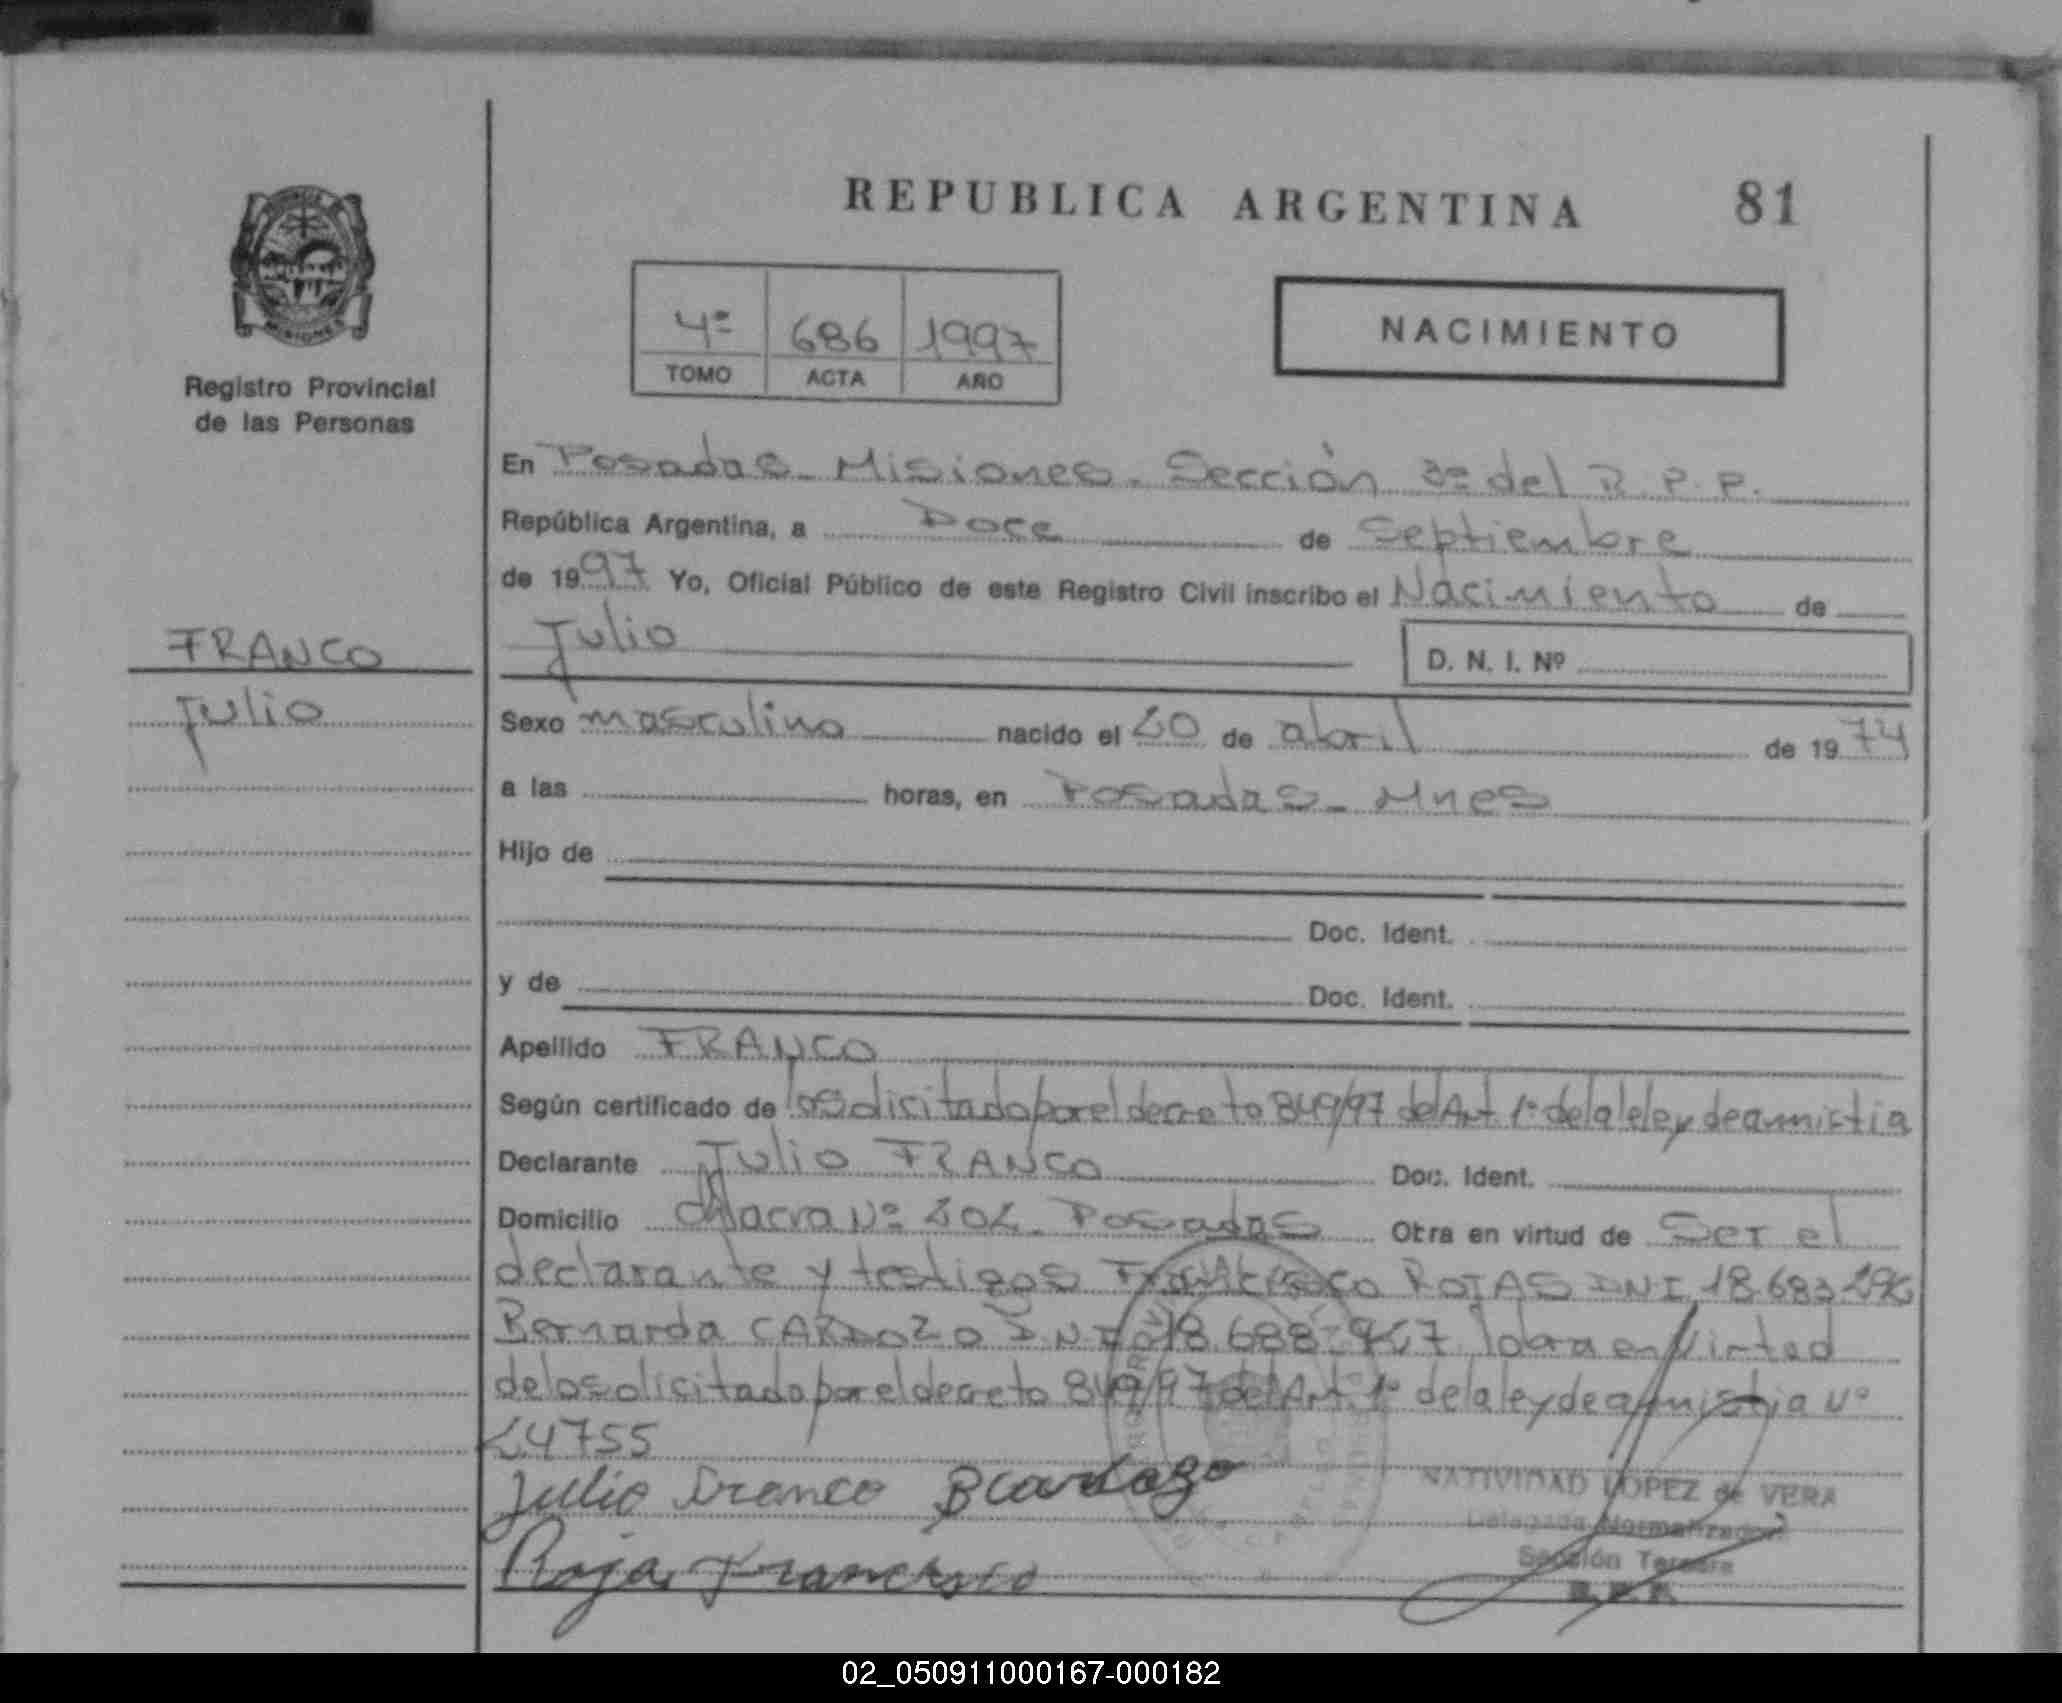 REPUBLICA ARGENTINA 81
4º 686 1997
TOMO ACTA AÑO
NACIMIENTO
MISIONES
Registro Provincial
de las Personas
En Posadas - Misiones - Sección 3º del R. P. P.
República Argentina, a Doce de Septiembre
de 1997 Yo, Oficial Público de este Registro Civil inscribo el Nacimiento de
FRANCO
Julio
Julio
D. N. I. Nº
Sexo masculino nacido el 20 de abril de 1974
a las horas, en Posadas - Mnes
Hijo de
Doc. Ident.
y de Doc. Ident.
Apellido FRANCO
Según certificado de lo solicitado por el decreto 849/97 del Art. 1º de la ley de amnistia
Declarante Julio FRANCO Doc. Ident.
Domicilio Chacra Nº 202 - Posadas Otra en virtud de Ser el
declarante y testigos Francisco ROJAS DNI 18.683
Bernarda CARDOZO D N I 18.688 labra en Virtud
de lo solicitado por el decreto 849/97 del Art. 1º de la ley de amnistia Nº
24755
Julio Franco B Cardozo
NATIVIDAD LOPEZ de VERA
Delegada Normalizador
Rojas Francisco
Sección Tercera
R. P. P.
02_050911000167-000182